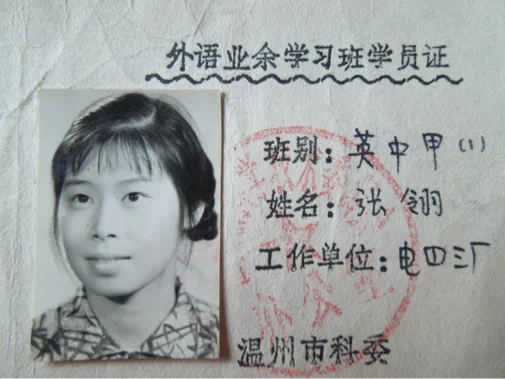 外语业余学习班学员证
班别：英中甲(1)
姓名：张翎
工作单位：电四三厂
温州市科委